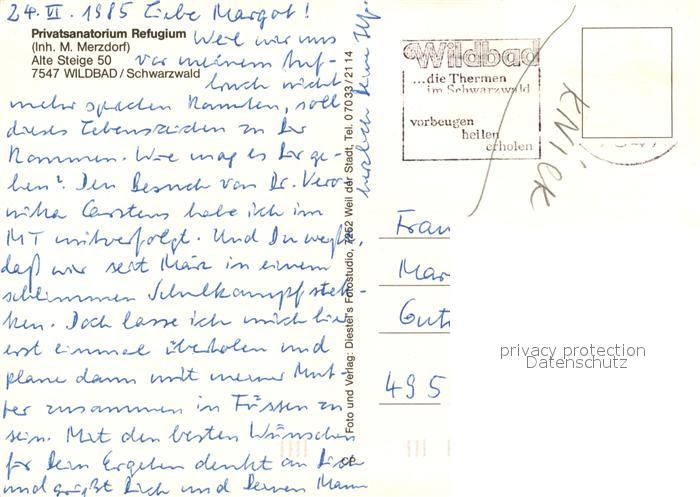 24. VI. 1985 Liebe Margot!
Privatsanatorium Refugium
(Inh. M. Merzdorf)
Alte Steige 50
7547 WILDBAD / Schwarzwald
Weil wir uns
vor meinem Auf-
bruch nicht
mehr sprechen konnten, soll
dieses Lebenszeichen zu Dir
kommen. Wie mag es Dir ge-
hen? Den Besuch von Dr. Vero-
nika Carstens habe ich im
MT mitverfolgt. Und Du weißt,
daß wir seit März in einem
schlimmen Schulkampf steh-
ken. Doch lasse ich mich hier
erst einmal überholen und
plane dann mit meiner Mut-
ter zusammen in Füssen zu
sein. Mit den besten Wünschen
für Dein Ergehen denkt an Dich
und grüßt Dich und Deinen Mann
herzlich Deine
Foto und Verlag: Diester's Fotostudio, 7252 Weil der Stadt, Tel. 0 70 33 / 21 14
CP
Wildbad
...die Thermen
im Schwarzwald
vorbeugen
heilen
erholen
KNICK
Frau
Mar
Gut
495
privacy protection
Datenschutz